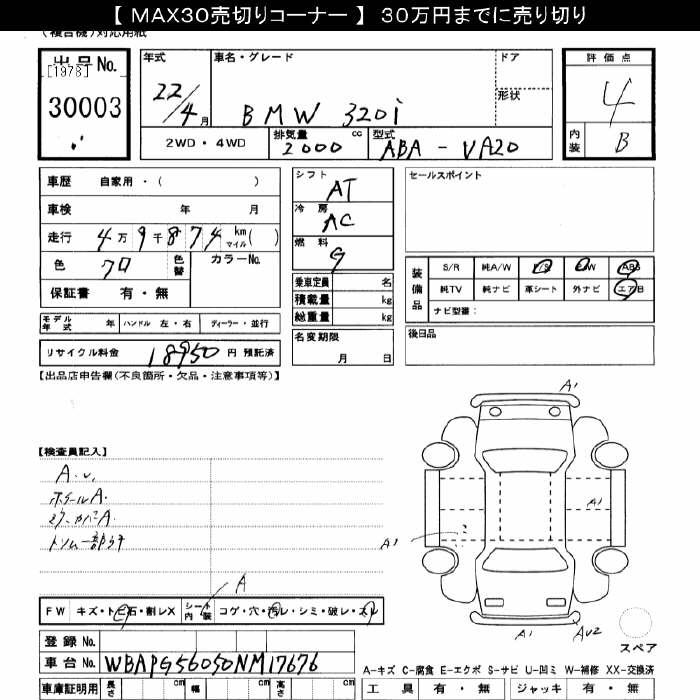 【 MAX30売切りコーナー 】 30万円までに売り切り
(複合機)対応用紙
出品No.
[1978]
30003
年式
22/4月
車名・グレード
BMW 320i
ドア
形状
2WD・4WD
排気量
2000 cc
型式
ABA - VA20
評価点
4
内装
B
車歴 自家用・( )
車検 年 月
走行 4万9千874 km マイル ( )
色 クロ
色替
カラーNo.
保証書 有・無
シフト
AT
冷房
AC
燃料
G
乗車定員 名
積載量 kg
総重量 kg
名変期限
月 日
セールスポイント
装備品
S/R 純A/W P/S P/W ABS
純TV 純ナビ 革シート 外ナビ エアB
ナビ型番:
後日品
モデル年式 年 ハンドル 左・右 ディーラー・並行
リサイクル料金 18950 円 預託済
【出品店申告欄(不良箇所・欠品・注意事項等)】
【検査員記入】
A.U,
ホイールA.
ミラーカバーA.
トリム一部ウキ
A
FW キズ・トビ石・割レX シート内装 コゲ・穴・汚レ・シミ・破レ・スレ
登録 No.
車台 No. WBAPG56050NM17676
車庫証明用 長さ cm 幅 cm 高さ cm
A1
A1
A1
A1
AU2
スペア
A-キズ C-腐食 E-エクボ S-サビ U-凹ミ W-補修 XX-交換済
工具 有・無 ジャッキ 有・無